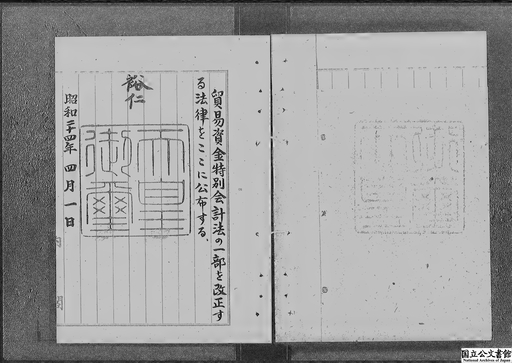 貿易資金特別会計法の一部を改正す
る法律をここに公布する。
裕仁
天皇
御璽
昭和二十四年 四月一日
国立公文書館
National Archives of Japan